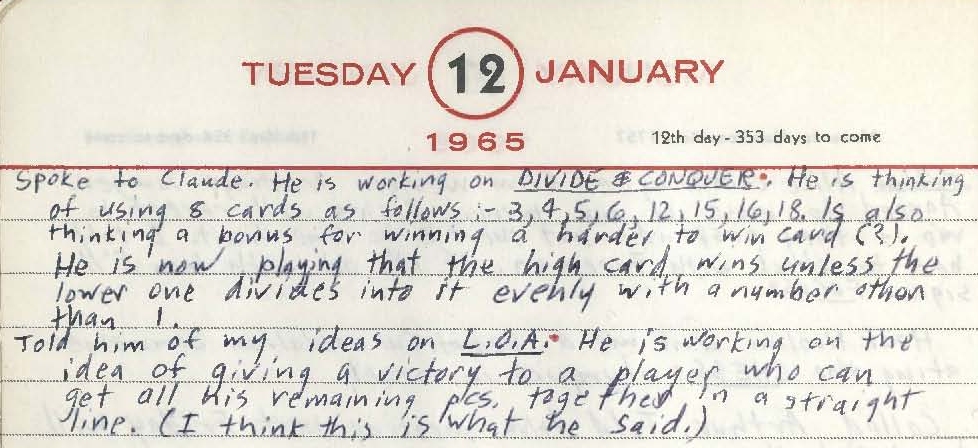 TUESDAY 12 JANUARY
1965
12th day - 353 days to come
Spoke to Claude. He is working on DIVIDE & CONQUER. He is thinking
of using 8 cards as follows :- 3,4,5,6,12,15,16,18. Is also
thinking a bonus for winning a harder to win card (?).
He is now playing that the high card wins unless the
lower one divides into it evenly with a number other
than 1.
Told him of my ideas on L.O.A. He is working on the
idea of giving a victory to a player who can
get all his remaining pcs. together in a straight
line. (I think this is what he said.)